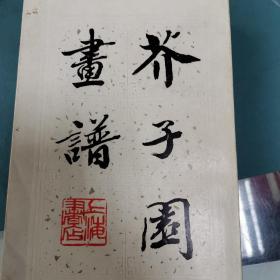 芥子園
畫譜
上海
書店